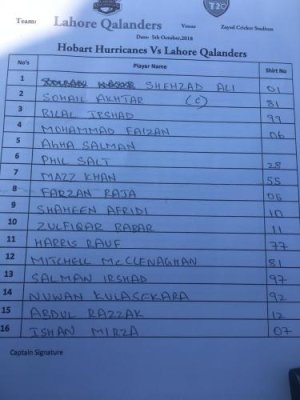 T20
Team: Lahore Qalanders
Venue Zayed Cricket Stadium
Date: 5th October, 2018
Hobart Hurricanes Vs Lahore Qalanders
No's Player Name Shirt No
1 SHEHZAD ALI 01
2 SOHAIL AKHTAR (C) 81
3 BILAL IRSHAD 99
4 MOHAMMAD FAIZAN 06
5 AGHA SALMAN
6 PHIL SALT 28
7 MAZZ KHAN 55
8 FARZAN RAJA 05
9 SHAHEEN AFRIDI 10
10 ZULFIQAR BABAR 11
11 HARRIS RAUF 77
12 MITCHELL McCLENAGHAN 81
13 SALMAN IRSHAD 97
14 NUWAN KULASEKARA 92
15 ABDUL RAZZAK 12
16 ISHAN MIRZA 07
Captain Signature